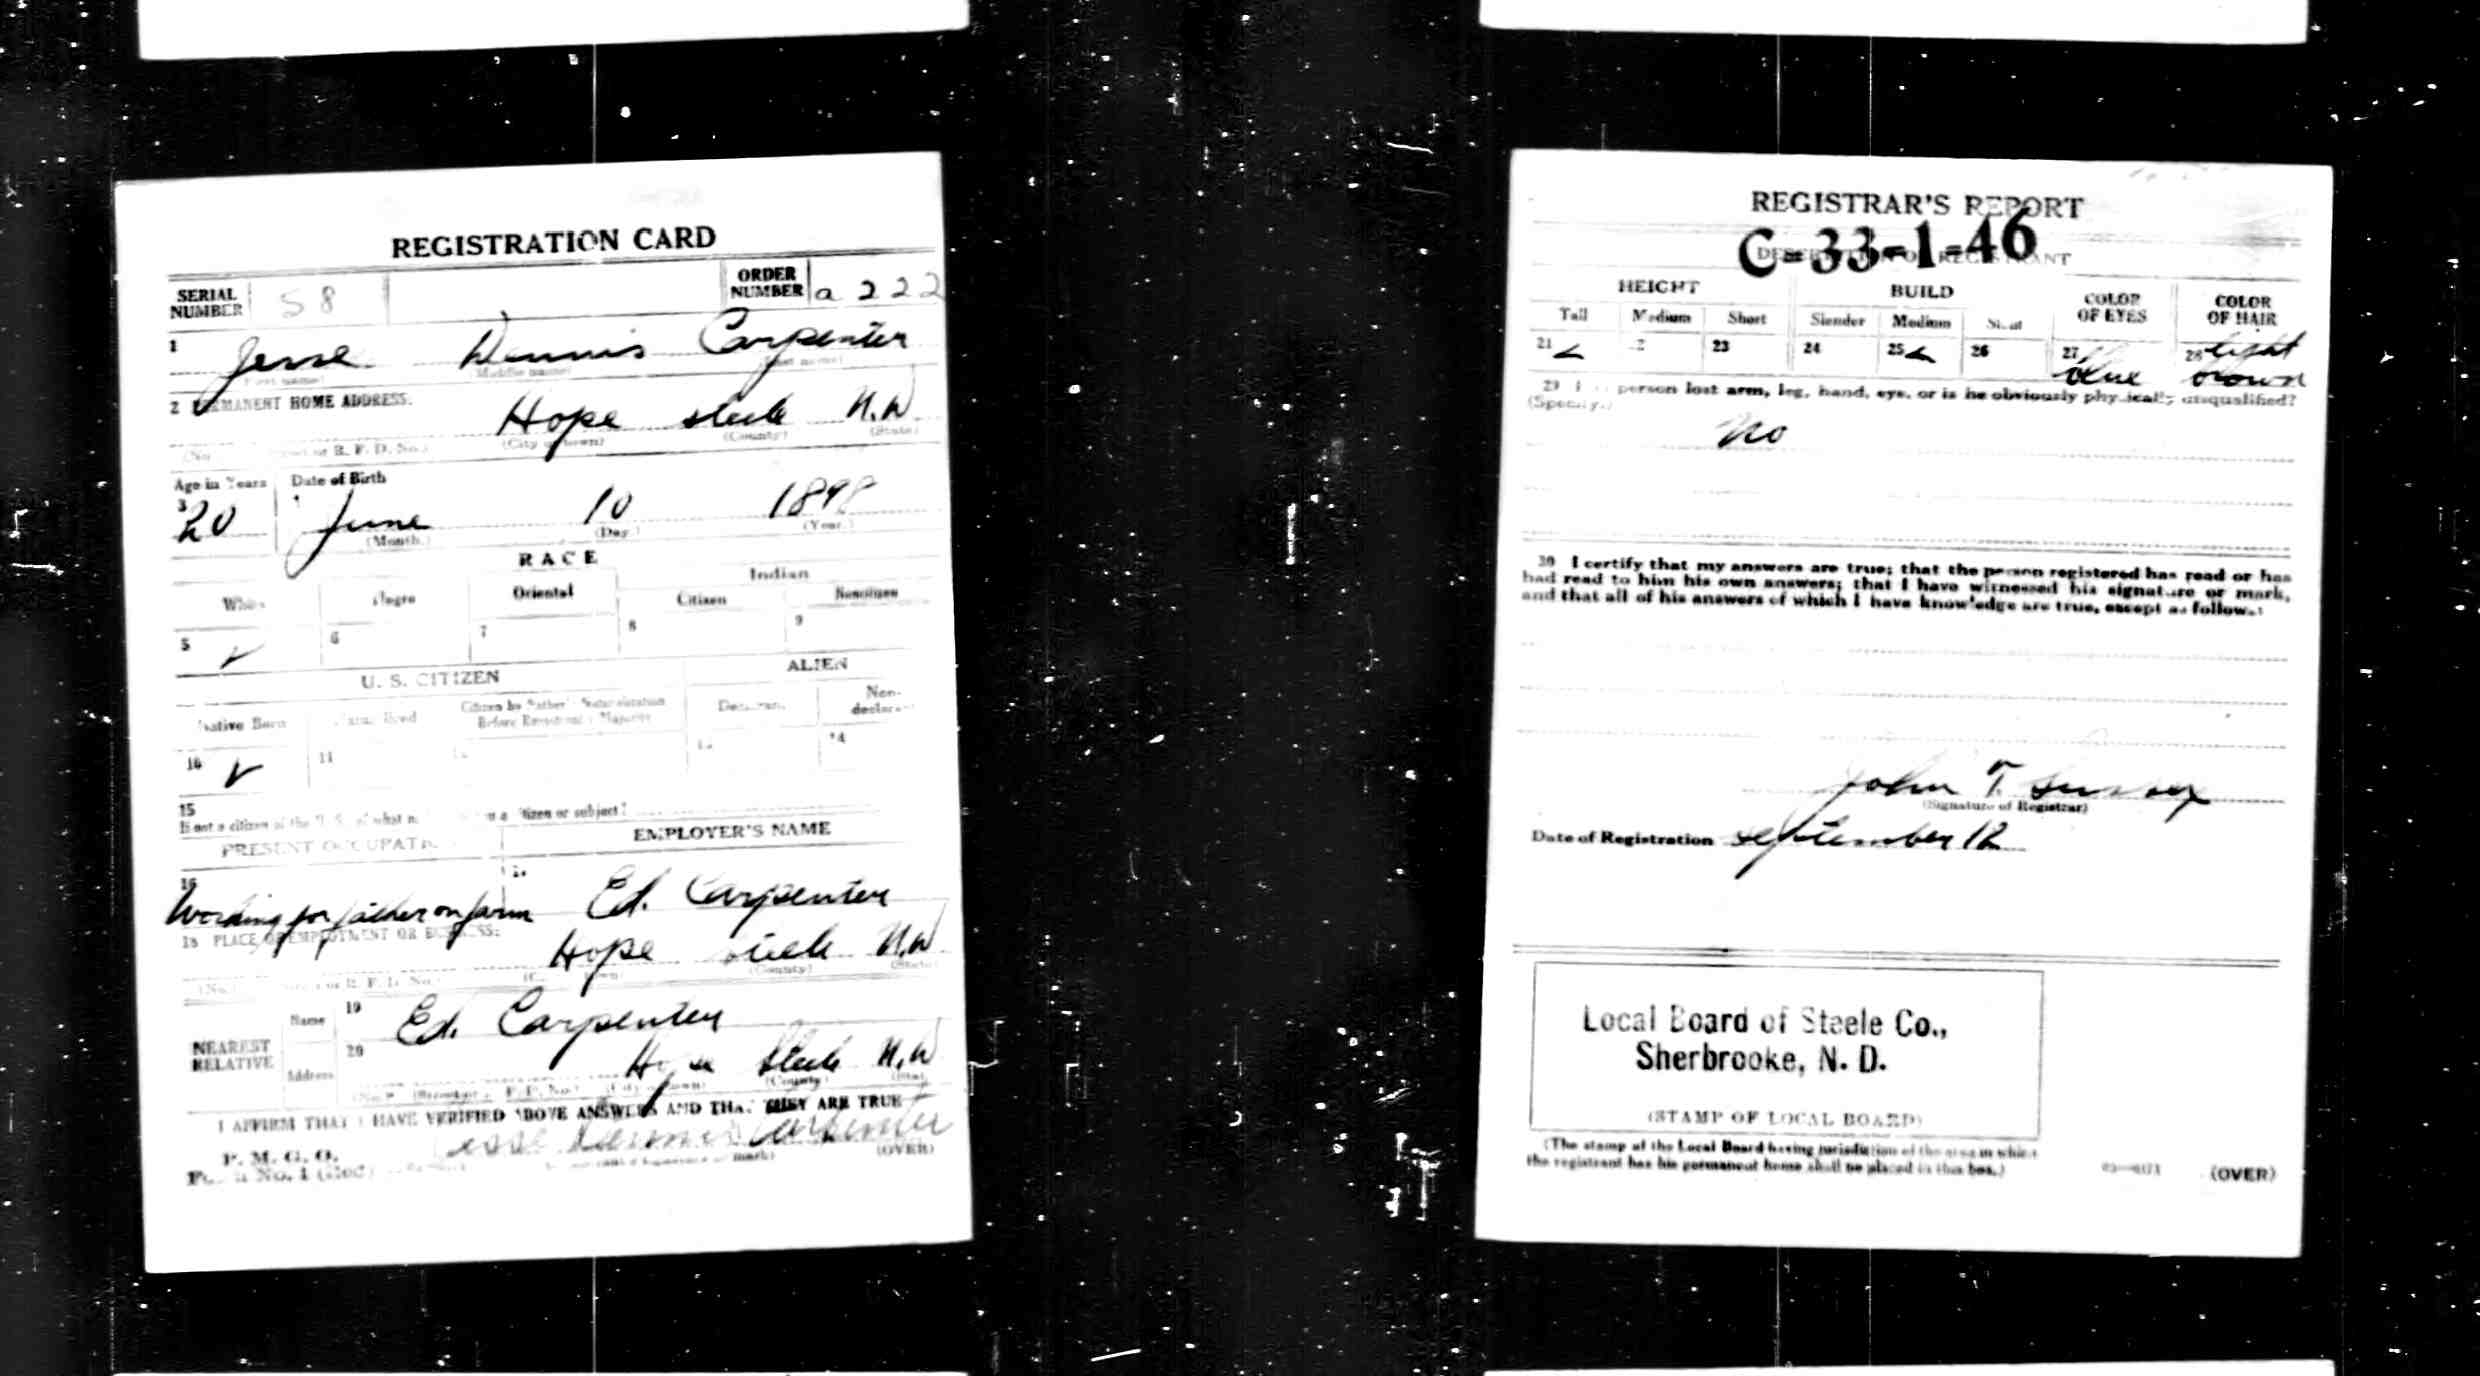 REGISTRATION CARD
SERIAL NUMBER 58 ORDER NUMBER a 222
1 Jesse Dennis Carpenter
(First name) (Middle name) (Last name)
2 PERMANENT HOME ADDRESS:
Hope Steele N.D
(No. or R. F. D. No.) (City or town) (County) (State)
Age in Years Date of Birth
3 20 June 10 1898
(Month.) (Day.) (Year.)
RACE
White Negro Oriental Indian
Citizen Noncitizen
5 ✓ 6 7 8 9
U. S. CITIZEN ALIEN
Native Born Naturalized Citizen by Father's Naturalization Before Registrant's Majority Declarant Non-declarant
10 ✓ 11 14
15
If not a citizen of the U. S., of what citizen or subject?
PRESENT OCCUPATION EMPLOYER'S NAME
16 Working for father on farm Ed. Carpenter
18 PLACE OF EMPLOYMENT OR BUSINESS:
Hope Steele N.D
(No.) or R. F. D. No.) (County) (State)
NEAREST RELATIVE Name 19 Ed. Carpenter
Address 20 Hope Steele N.D
(No.) (City or town) (County) (State)
I AFFIRM THAT I HAVE VERIFIED ABOVE ANSWERS AND THAT THEY ARE TRUE
P. M. G. O.
Form No. 1 (Red) Jesse Dennis Carpenter
(OVER)
REGISTRAR'S REPORT
C-33-1-46
DESCRIPTION OF REGISTRANT
HEIGHT BUILD COLOR OF EYES COLOR OF HAIR
Tall Medium Short Slender Medium Stout
21 ✓ 22 23 24 25 ✓ 26 27 blue 28 light brown
29 person lost arm, leg, hand, eye, or is he obviously physically disqualified?
(Specify.)
No
30 I certify that my answers are true; that the person registered has read or has
had read to him his own answers; that I have witnessed his signature or mark,
and that all of his answers of which I have knowledge are true, except as follows:
John T.
(Signature of Registrar)
Date of Registration September 12
Local Board of Steele Co.,
Sherbrooke, N. D.
(STAMP OF LOCAL BOARD)
(The stamp of the Local Board having jurisdiction of the area in which
the registrant has his permanent home shall be placed in this box.)
(OVER)